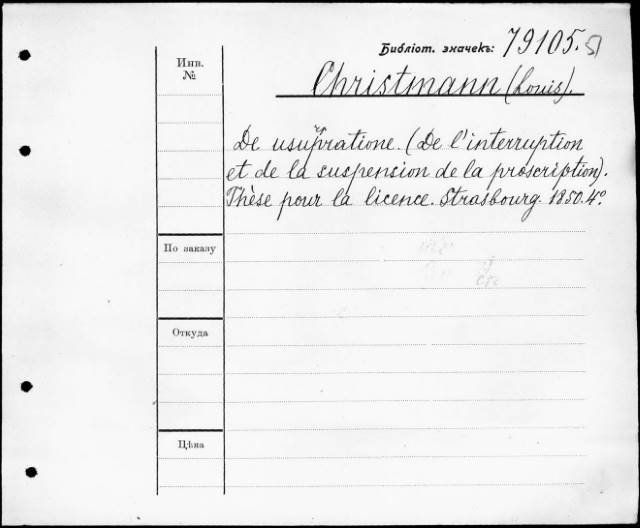 Библіот. значекъ: 79105.
Инв.
№
Christmann (Louis).
De usurpratione. (De l'interruption
et de la suspension de la proscription).
Thèse pour la licence. Strasbourg. 1850. 4º.
По заказу
Откуда
Цѣна